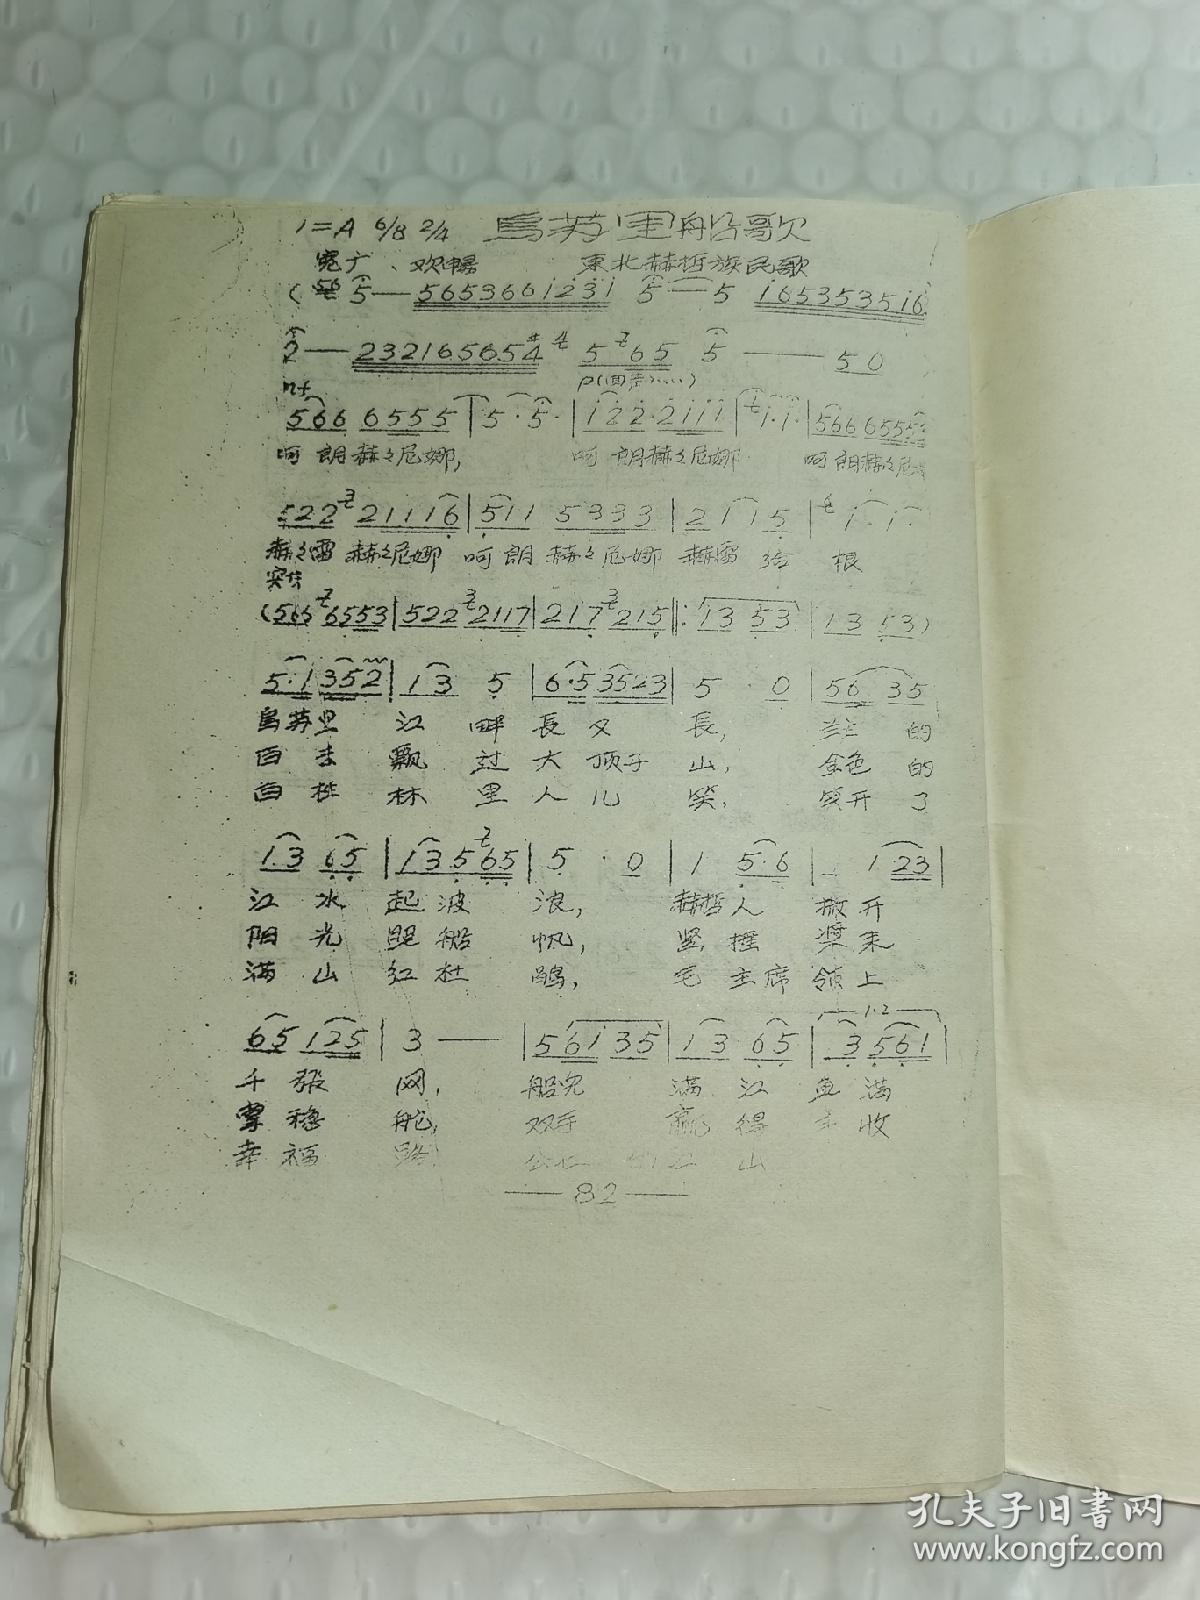 1=A 6/8 2/4 烏苏里船歌
宽广、欢暢 東北赫哲族民歌
(56 5— 5653661231 5—5 165353516
2— 23216565654 5 65 5——— 5 0
P(回声……)
mf
566 6555 5 | 5· 5· | 122·2111 | 1·1· | 566 6555
呵朗赫々尼娜, 呵朗赫々尼娜 呵朗赫々尼
522 21116 | 511 5333 | 2115 | 1·1·
赫々雷赫々尼娜 呵朗赫々尼娜 赫雷 根
(565 6553 | 522 2117 | 217 215 ‖: 13 53 | 13 13)
5·1 352 | 13 5 | 6·5 3523 | 5 · 0 | 56 35
烏苏里 江 畔 長又 長, 兰兰 的
白云 飘 过 大顶子 山, 金色 的
白桦 林 里 人儿 笑, 笑开 了
1·3 65 | 13 5 65 | 5 · 0 | 1 5·6 | 1 23 |
江水 起波 浪, 赫哲人 撒开
阳光 照船 帆, 紧摇 桨来
满山 红杜 鹃, 毛主席 领上
1·2
65 125 | 3 — | 5 61 35 | 13 65 | 3 561
千張 网, 船兒 满江 魚满
掌稳 舵, 双手 赢得 收
幸福 路 山
—82—
孔夫子旧书网
www.kongfz.com